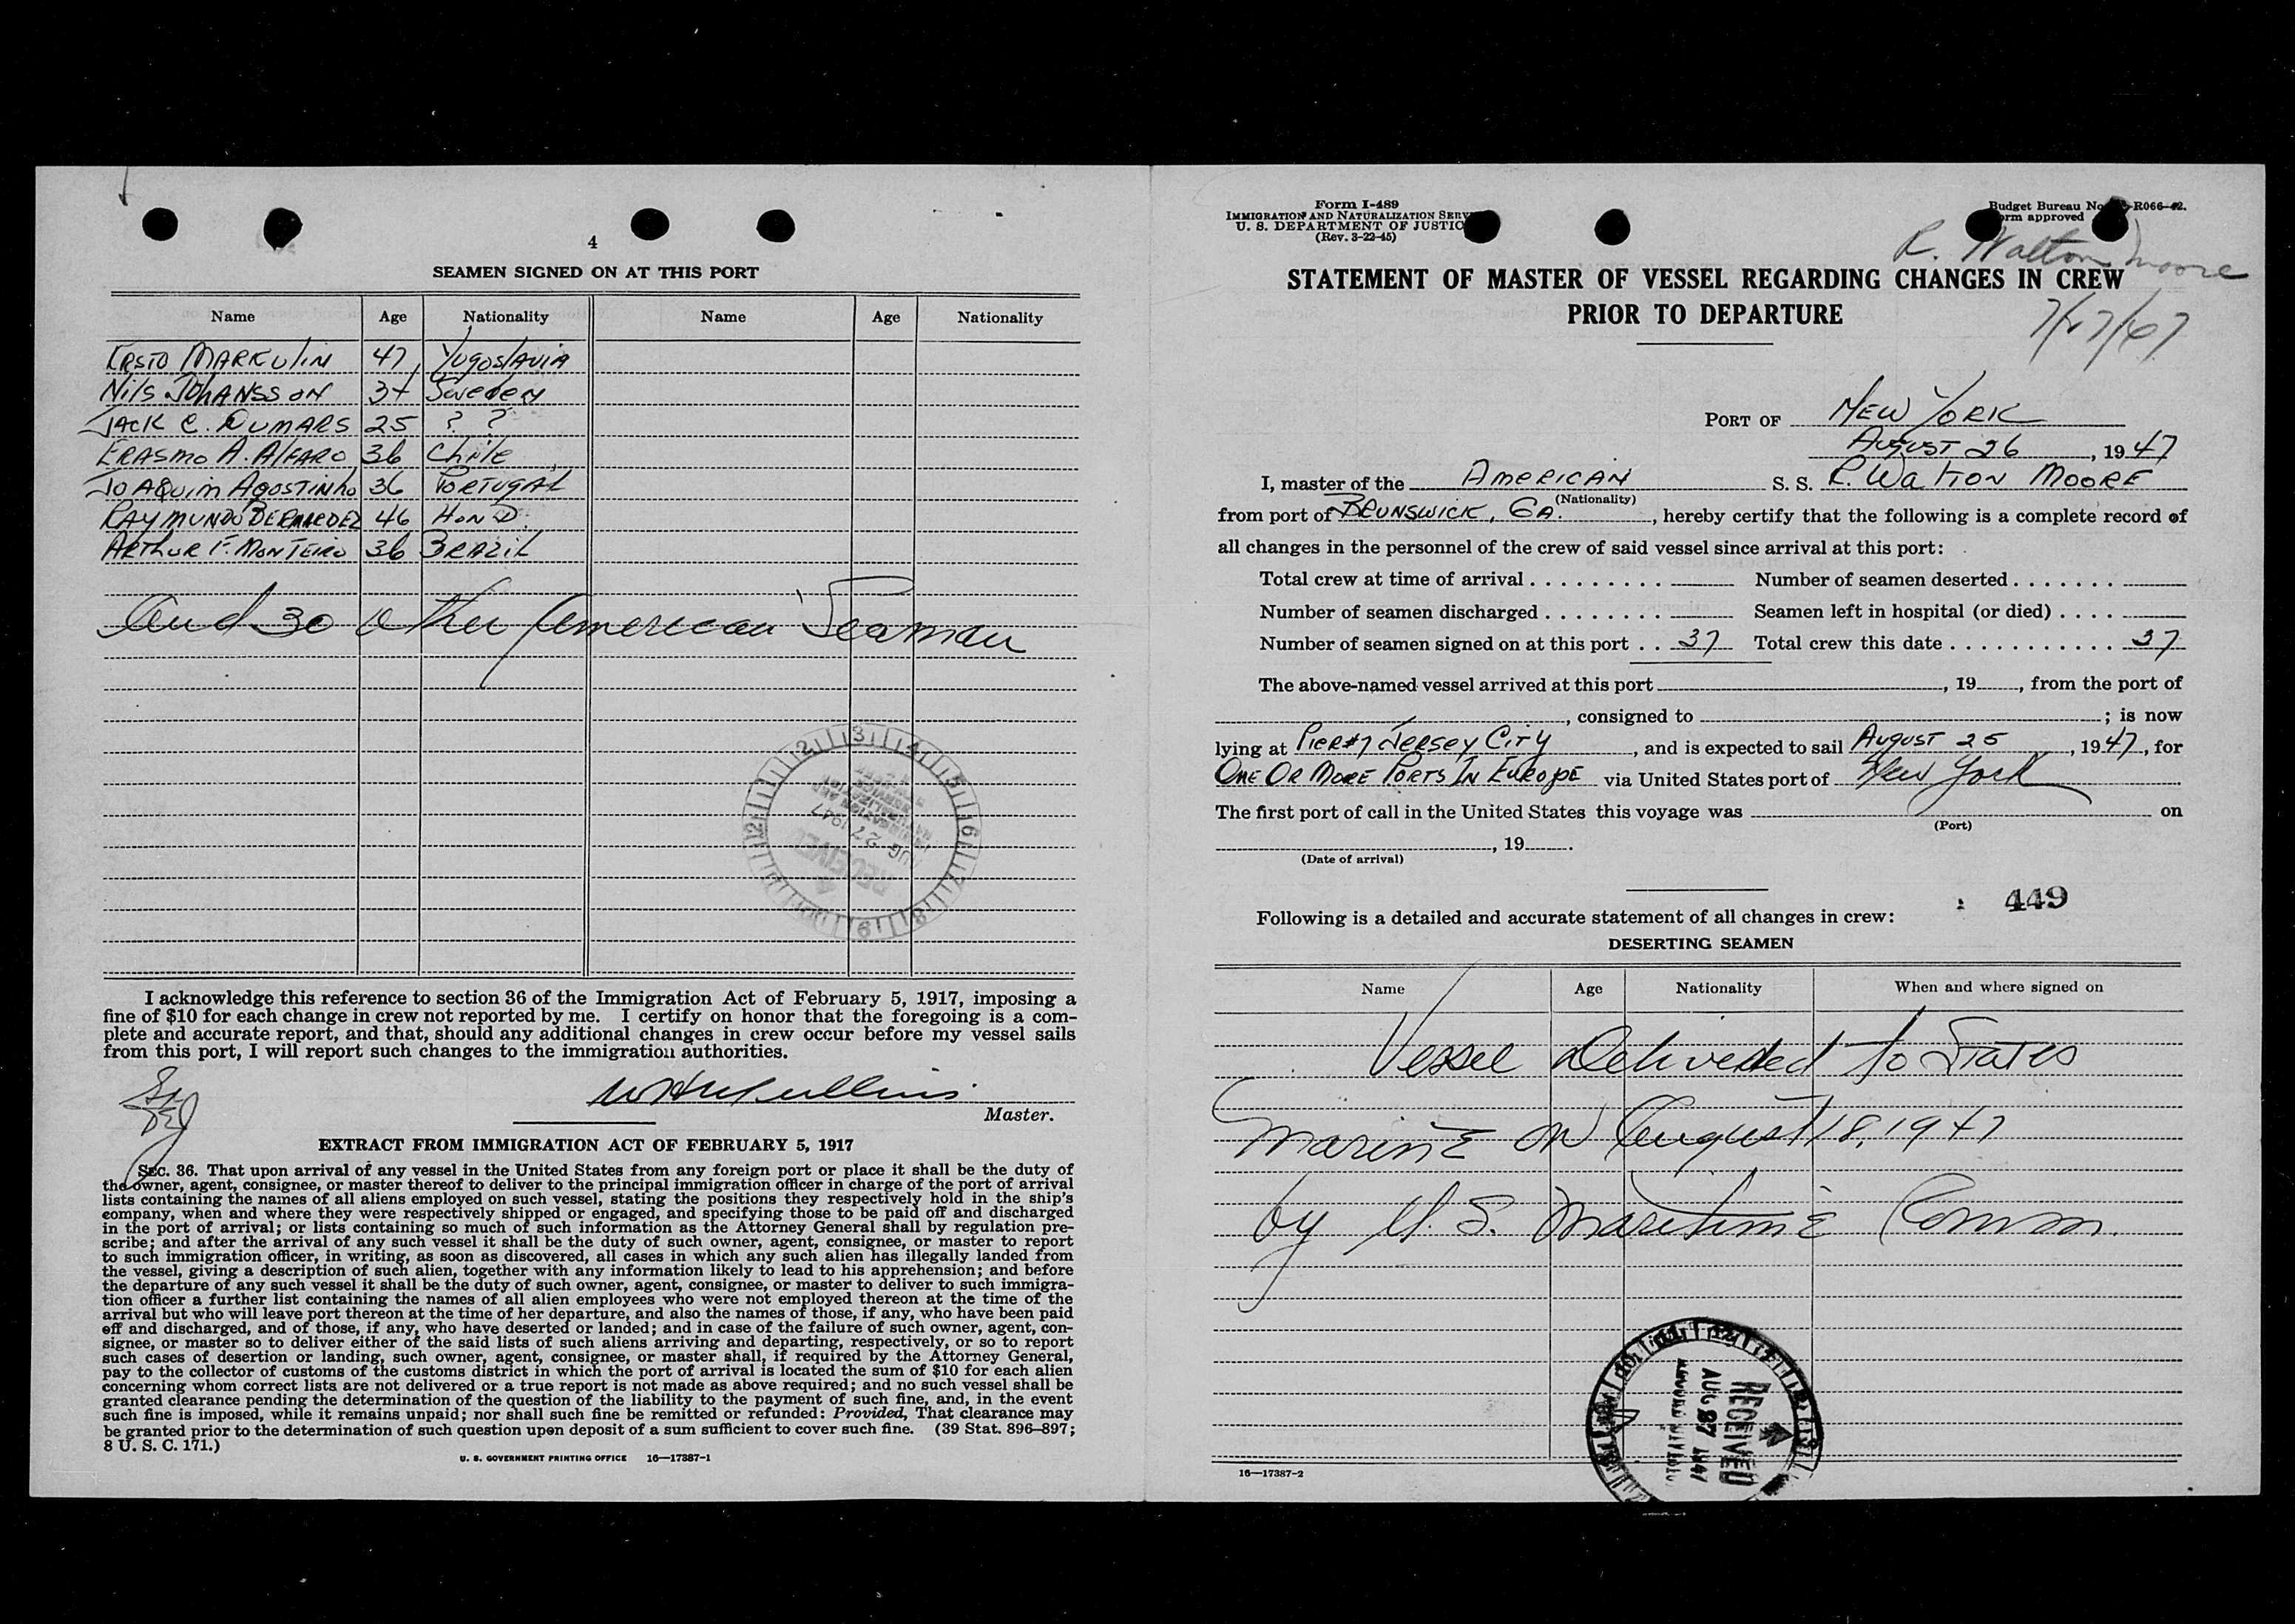 4
SEAMEN SIGNED ON AT THIS PORT
Name Age Nationality Name Age Nationality
KRSTO MARKULIN 47 YUGOSLAVIA
Nils JOHANSSON 37 Sweden
JACK C. DUMARS 25 ? ?
ERASMO A. ALFARO 36 CHILE
JOAQUIM AGOSTINHO 36 PORTUGAL
RAYMUNDO BERMEDEZ 46 HOND.
ARTHUR F. MONTEIRO 36 BRAZIL
And 30 other American Seaman
AUG 27 1947
RECEIVED
I acknowledge this reference to section 36 of the Immigration Act of February 5, 1917, imposing a
fine of $10 for each change in crew not reported by me. I certify on honor that the foregoing is a com-
plete and accurate report, and that, should any additional changes in crew occur before my vessel sails
from this port, I will report such changes to the immigration authorities.
Master.
EXTRACT FROM IMMIGRATION ACT OF FEBRUARY 5, 1917
SEC. 36. That upon arrival of any vessel in the United States from any foreign port or place it shall be the duty of
the owner, agent, consignee, or master thereof to deliver to the principal immigration officer in charge of the port of arrival
lists containing the names of all aliens employed on such vessel, stating the positions they respectively hold in the ship's
company, when and where they were respectively shipped or engaged, and specifying those to be paid off and discharged
in the port of arrival; or lists containing so much of such information as the Attorney General shall by regulation pre-
scribe; and after the arrival of any such vessel it shall be the duty of such owner, agent, consignee, or master to report
to such immigration officer, in writing, as soon as discovered, all cases in which any such alien has illegally landed from
the vessel, giving a description of such alien, together with any information likely to lead to his apprehension; and before
the departure of any such vessel it shall be the duty of such owner, agent, consignee, or master to deliver to such immigra-
tion officer a further list containing the names of all alien employees who were not employed thereon at the time of the
arrival but who will leave port thereon at the time of her departure, and also the names of those, if any, who have been paid
off and discharged, and of those, if any, who have deserted or landed; and in case of the failure of such owner, agent, con-
signee, or master so to deliver either of the said lists of such aliens arriving and departing, respectively, or so to report
such cases of desertion or landing, such owner, agent, consignee, or master shall, if required by the Attorney General,
pay to the collector of customs of the customs district in which the port of arrival is located the sum of $10 for each alien
concerning whom correct lists are not delivered or a true report is not made as above required; and no such vessel shall be
granted clearance pending the determination of the question of the liability to the payment of such fine, and, in the event
such fine is imposed, while it remains unpaid; nor shall such fine be remitted or refunded: Provided, That clearance may
be granted prior to the determination of such question upon deposit of a sum sufficient to cover such fine. (39 Stat. 896–897;
8 U. S. C. 171.)
U. S. GOVERNMENT PRINTING OFFICE 16—17387-1
Form I-489
IMMIGRATION AND NATURALIZATION SERV
U. S. DEPARTMENT OF JUSTIC
(Rev. 3-22-45)
Budget Bureau No. R066-42.
orm approved
R. Walton Moore
STATEMENT OF MASTER OF VESSEL REGARDING CHANGES IN CREW
PRIOR TO DEPARTURE
PORT OF NEW YORK
AUGUST 26, 1947
I, master of the AMERICAN S. S. R. WALTON MOORE
(Nationality)
from port of BRUNSWICK, GA., hereby certify that the following is a complete record of
all changes in the personnel of the crew of said vessel since arrival at this port:
Total crew at time of arrival . . . . . . . . . Number of seamen deserted . . . . . . .
Number of seamen discharged . . . . . . . . Seamen left in hospital (or died) . . . .
Number of seamen signed on at this port . . 37 Total crew this date . . . . . . . . . . . 37
The above-named vessel arrived at this port , 19 , from the port of
, consigned to ; is now
lying at PIER #7 JERSEY CITY, and is expected to sail AUGUST 25, 1947, for
ONE OR MORE PORTS IN EUROPE via United States port of New York
The first port of call in the United States this voyage was on
(Port)
, 19 .
(Date of arrival)
449
Following is a detailed and accurate statement of all changes in crew:
DESERTING SEAMEN
Name Age Nationality When and where signed on
Vessel Delivered to States
Marine on August 18, 1947
by U. S. Maritime Comm.
RECEIVED
AUG 27 1947
16—17387-2